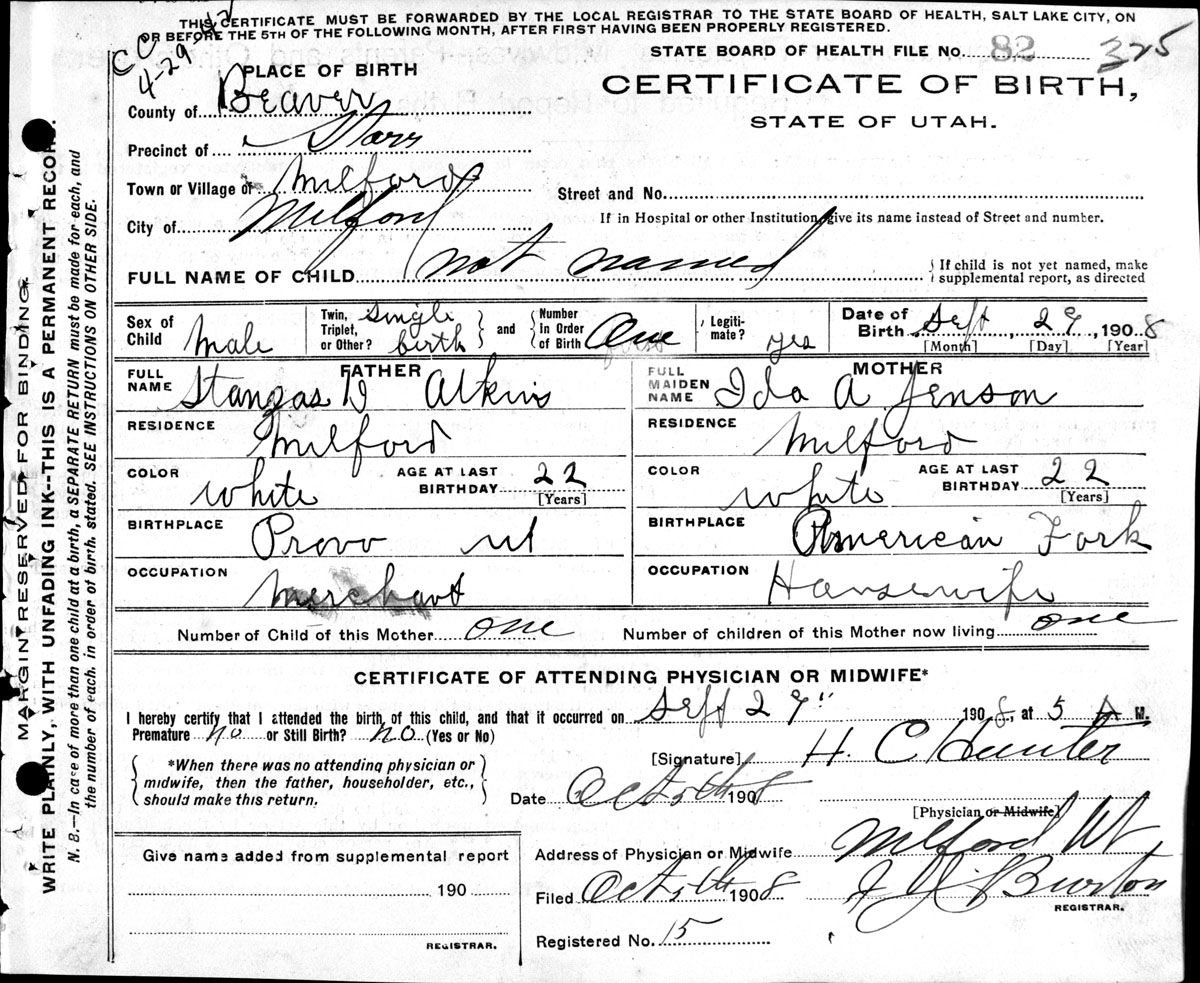 THIS CERTIFICATE MUST BE FORWARDED BY THE LOCAL REGISTRAR TO THE STATE BOARD OF HEALTH, SALT LAKE CITY, ON
OR BEFORE THE 5TH OF THE FOLLOWING MONTH, AFTER FIRST HAVING BEEN PROPERLY REGISTERED.
4-29
STATE BOARD OF HEALTH FILE No. 82 325
PLACE OF BIRTH
CERTIFICATE OF BIRTH,
STATE OF UTAH.
County of Beaver
Precinct of Starr
Town or Village of Milford
Street and No.
City of Milford
If in Hospital or other Institution, give its name instead of Street and number.
FULL NAME OF CHILD not named
If child is not yet named, make supplemental report, as directed
Sex of Child Male
Twin, Triplet, or Other? single birth and Number In Order of Birth One
Legitimate? yes
Date of Birth Sept, 29, 1908
[Month] [Day] [Year]
FATHER
FULL NAME D Atkin
RESIDENCE Milford
COLOR White AGE AT LAST BIRTHDAY 22 [Years]
BIRTHPLACE Provo ut
OCCUPATION Merchant
MOTHER
FULL MAIDEN NAME Ida A Jenson
RESIDENCE Milford
COLOR White AGE AT LAST BIRTHDAY 22 [Years]
BIRTHPLACE American Fork
OCCUPATION Housewife
Number of Child of this Mother one Number of children of this Mother now living one
CERTIFICATE OF ATTENDING PHYSICIAN OR MIDWIFE*
I hereby certify that I attended the birth of this child, and that it occurred on Sept 29" 1908, at 5 A M.
Premature no or Still Birth? NO (Yes or No)
*When there was no attending physician or
midwife, then the father, householder, etc.,
should make this return.
[Signature] H. C Hunter
Date Oct 5th 1908
[Physician or Midwife]
Address of Physician or Midwife Milford Ut
Filed Oct 5th 1908 Burton
REGISTRAR.
Registered No. 15
Give name added from supplemental report
190
REGISTRAR.
MARGIN RESERVED FOR BINDING.
WRITE PLAINLY, WITH UNFADING INK--THIS IS A PERMANENT RECORD.
N. B.--In case of more than one child at a birth, a SEPARATE RETURN must be made for each, and
the number of each, in order of birth stated. SEE INSTRUCTIONS ON OTHER SIDE.